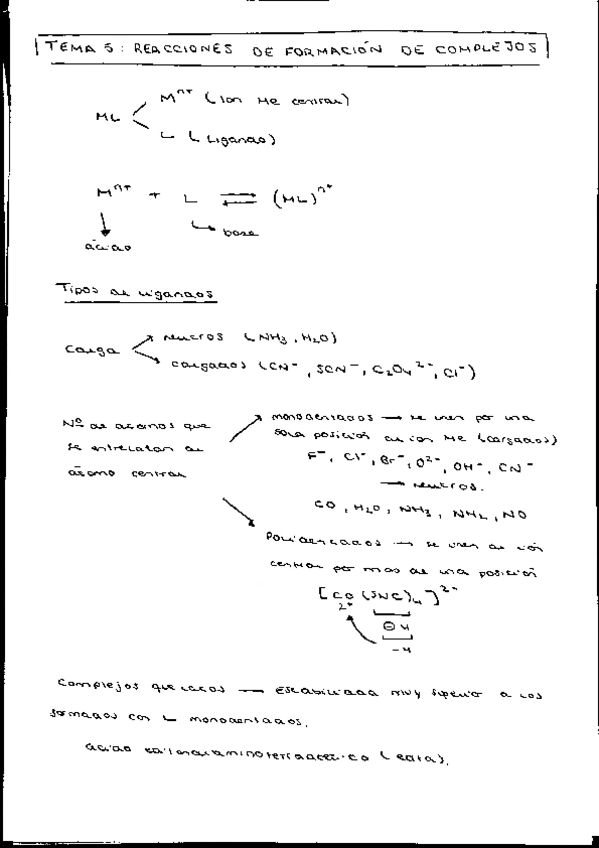 TEMA 5: REACCIONES DE FORMACIÓN DE COMPLEJOS
Mⁿ⁺ (ion Me central)
ML
L (Ligando)
Mⁿ⁺ + L ⇌ (ML)ⁿ⁺
ácido
base
Tipos de ligandos
neutros (NH₃, H₂O)
Carga
cargados (CN⁻, SCN⁻, C₂O₄²⁻, Cl⁻)
monodentados → se unen por una
Nº de átomos que
sola posición al ion Me (cargados)
se entrelazan al
F⁻, Cl⁻, Br⁻, O²⁻, OH⁻, CN⁻
átomo central
→ neutros.
CO, H₂O, NH₃, NH₂, NO
Polidentados → se unen al ión
central por mas de una posición
[CO (SNC)₄]²⁻
2+
⊖ 4
-4
Complejos quelatos → Estabilidad muy superior a los
formados con L monodentados.
ácido etilendiaminotetraacético (edta).